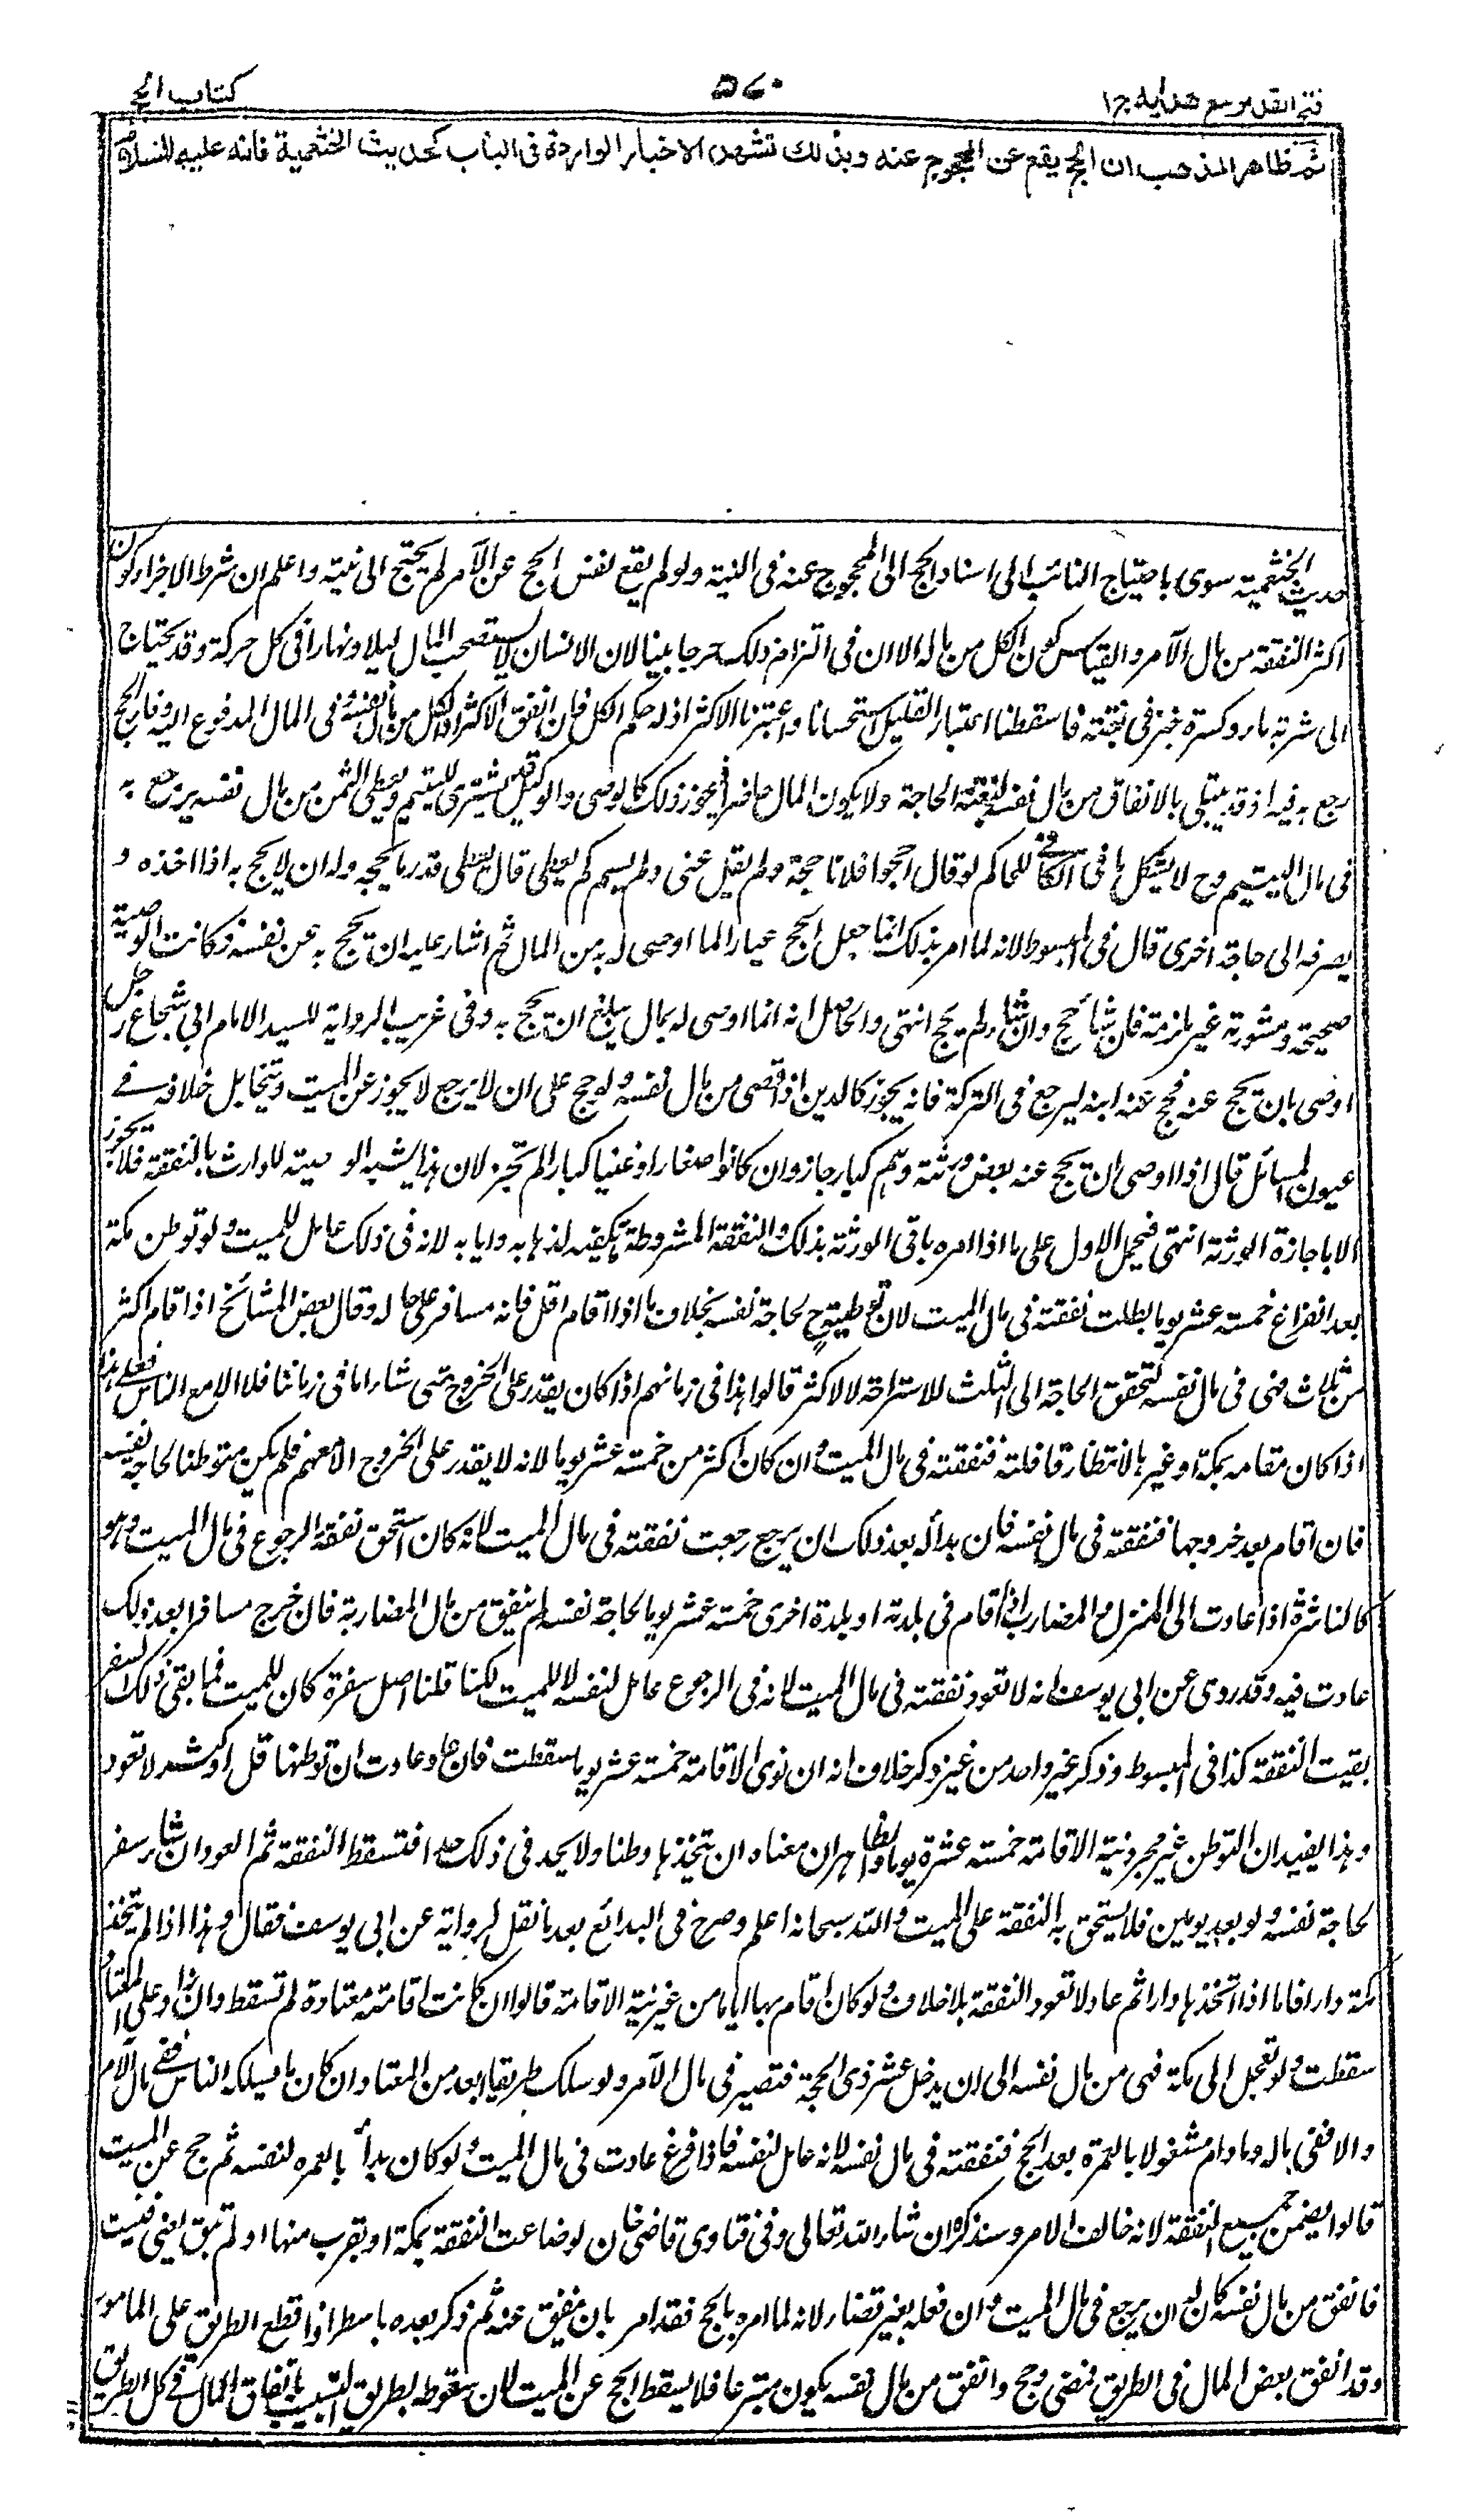 فتح القدير مع هداية ج١
٥٧٠
كتاب الحج
ثم ظاهر المذهب ان الحج يقع عن المحجوج عنه وبذلك تشهد الاخبار الواردة فى الباب كحديث الخثعمية فانه عليه السلام
حديث الخثعمية سوى باحتياج النائب الى اسناد الحج الى المحجوج عنه فى النية ولو لم يقع نفس الحج عن الآمر لم يحتج الى نيته واعلم ان شرط الاجزاء كون
اكثر النفقة من مال الآمر والقياس كون الكل من ماله الا ان فى التزام ذلك حرجا بينا لان الانسان لا يستصحب المال ليلا ونهارا فى كل حركة وقد يحتاج
الى شربة ماء وكسرة خبز فى بقعة فاسقطنا اعتبار القليل استحسانا واعتبرنا الاكثر اذ له حكم الكل فان انفق الاكثر او الكل من مال نفسه وفى المال المدفوع اليه وفاء بحج
رجع به فيه اذ قد يبتلى بالانفاق من مال نفسه لبغتة الحاجة ولا يكون المال حاضرا فيجوز ذلك كالوصى والوكيل يشترى لليتيم ويعطى الثمن من مال نفسه يرجع به
فى مال اليتيم وح لا يشكل ما فى الكافى للحاكم لو قال احجوا فلانا حجة ولم يقل عنى ولم يسم كم يعطى قال يعطى قدر ما يحج به وله ان لا يحج به اذا اخذه و
يصرفه الى حاجة اخرى قال فى المبسوط لانه لما امر بذلك انما جعل الحج عيارا لما اوصى له به من المال ثم اشار عليه ان يحج به عن نفسه فكانت الوصية
صحيحة ومشورته غير ملزمة فان شاء حج وان شاء لم يحج انتهى والحاصل انه انما اوصى له بمال يبلغ ان يحج به وفى غريب الرواية للسيد الامام ابى شجاع رجل
اوصى بان يحج عنه فحج عنه ابنه ليرجع فى التركة فانه يجوز كالدين اذا قضى من مال نفسه ولو حج على ان لا يرجع لا يجوز عن الميت ويتخايل خلافه فى
عيون المسائل قال اذا اوصى ان يحج عنه بعض ورثته وهم كبار جاز وان كانوا صغارا او غيبا كبارا لم تجز لان هذا يشبه الوصية للوارث بالنفقة فلا يجوز
الا باجازة الورثة انتهى فيحمل الاول على ما اذا امره باقى الورثة بذلك والنفقة المشروطة ما تكفيه لذهابه وايابه لانه فى ذلك عامل للميت ولو توطن مكة
بعد الفراغ خمسة عشر يوما بطلت نفقته فى مال الميت لان توطينه ح لحاجة نفسه بخلاف ما اذا اقام اقل فانه مسافر على حاله وقال بعض المشائخ اذا اقام اكثر
من ثلاث فهى فى مال نفسه لتحقق الحاجة الى الثلث للاستراحة لا لاكثر قالوا هذا فى زمانهم اذا كان يقدر على الخروج متى شاء اما فى زماننا فلا الا مع الناس فعلى هذا
اذا كان مقامه بمكة او غيرها لانتظار قافلته فنفقته فى مال الميت وان كان اكثر من خمسة عشر يوما لانه لا يقدر على الخروج الا معهم فلم يكن متوطنا لحاجة نفسه
فان اقام بعد خروجها فنفقته فى مال نفسه فان بدا له بعد ذلك ان يرجع رجعت نفقته فى مال الميت لانه كان استحق نفقة الرجوع فى مال الميت وهو
كالناشزة اذا عادت الى المنزل والمضارب اذا اقام فى بلدته او بلدة اخرى خمسة عشر يوما لحاجة نفسه لم ينفق من مال المضاربة فان خرج مسافرا بعد ذلك
عادت فيه وقد روى عن ابى يوسف انه لا تعود نفقته فى مال الميت لانه فى الرجوع عامل لنفسه لا للميت لكنا قلنا اصل سفره كان للميت فما بقى ذلك السفر
بقيت النفقة كذا فى المبسوط وذكر غير واحد من غير ذكر خلاف انه ان نوى الاقامة خمسة عشر يوما سقطت فان عاد عادت ان توطنها قل او كثر لا تعود
وهذا يفيد ان التوطن غير مجرد نية الاقامة خمسة عشرة يوما والظاهر ان معناه ان يتخذها وطنا ولا يحد فى ذلك حدا فتسقط النفقة ثم العود ان شاء سفر
لحاجة نفسه ولو بعد يومين فلا يستحق به النفقة على الميت والله سبحانه اعلم وصرح فى البدائع بعد ما نقل الرواية عن ابى يوسف فقال وهذا اذا لم يتخذ
مكة دارا فاما اذا اتخذها دارا ثم عاد لا تعود النفقة بلا خلاف ولو كان اقام بها اياما من غير نية الاقامة قالوا ان كانت اقامته معتادة لم تسقط وان زاد على المعتاد
سقطت ولو تعجل الى مكة فهى من مال نفسه الى ان يدخل عشر ذى الحجة فتصير فى مال الآمر ولو سلك طريقا ابعد من المعتاد ان كان مما يسلكه الناس ففى مال الآمر
والا ففى ماله وما دام مشغولا بالعمرة بعد الحج فنفقته فى مال نفسه لانه عامل لنفسه فاذا فرغ عادت فى مال الميت ولو كان بدأ بالعمرة لنفسه ثم حج عن الميت
قالوا يضمن جميع النفقة لانه خالف الامر وسنذكره ان شاء الله تعالى وفى فتاوى قاضى خان لو ضاعت النفقة بمكة او بقرب منها او لم تبق يعنى فنيت
فانفق من مال نفسه كان له ان يرجع فى مال الميت وان فعله بغير قضاء لانه لما امره بالحج فقد امر بان ينفق عنه ثم ذكر بعده باسطر اذا قطع الطريق على المامور
وقد انفق بعض المال فى الطريق فمضى وحج وانفق من مال نفسه يكون متبرعا فلا يسقط الحج عن الميت لان سقوطه بطريق التسبيب بانفاق المال فى كل الطريق